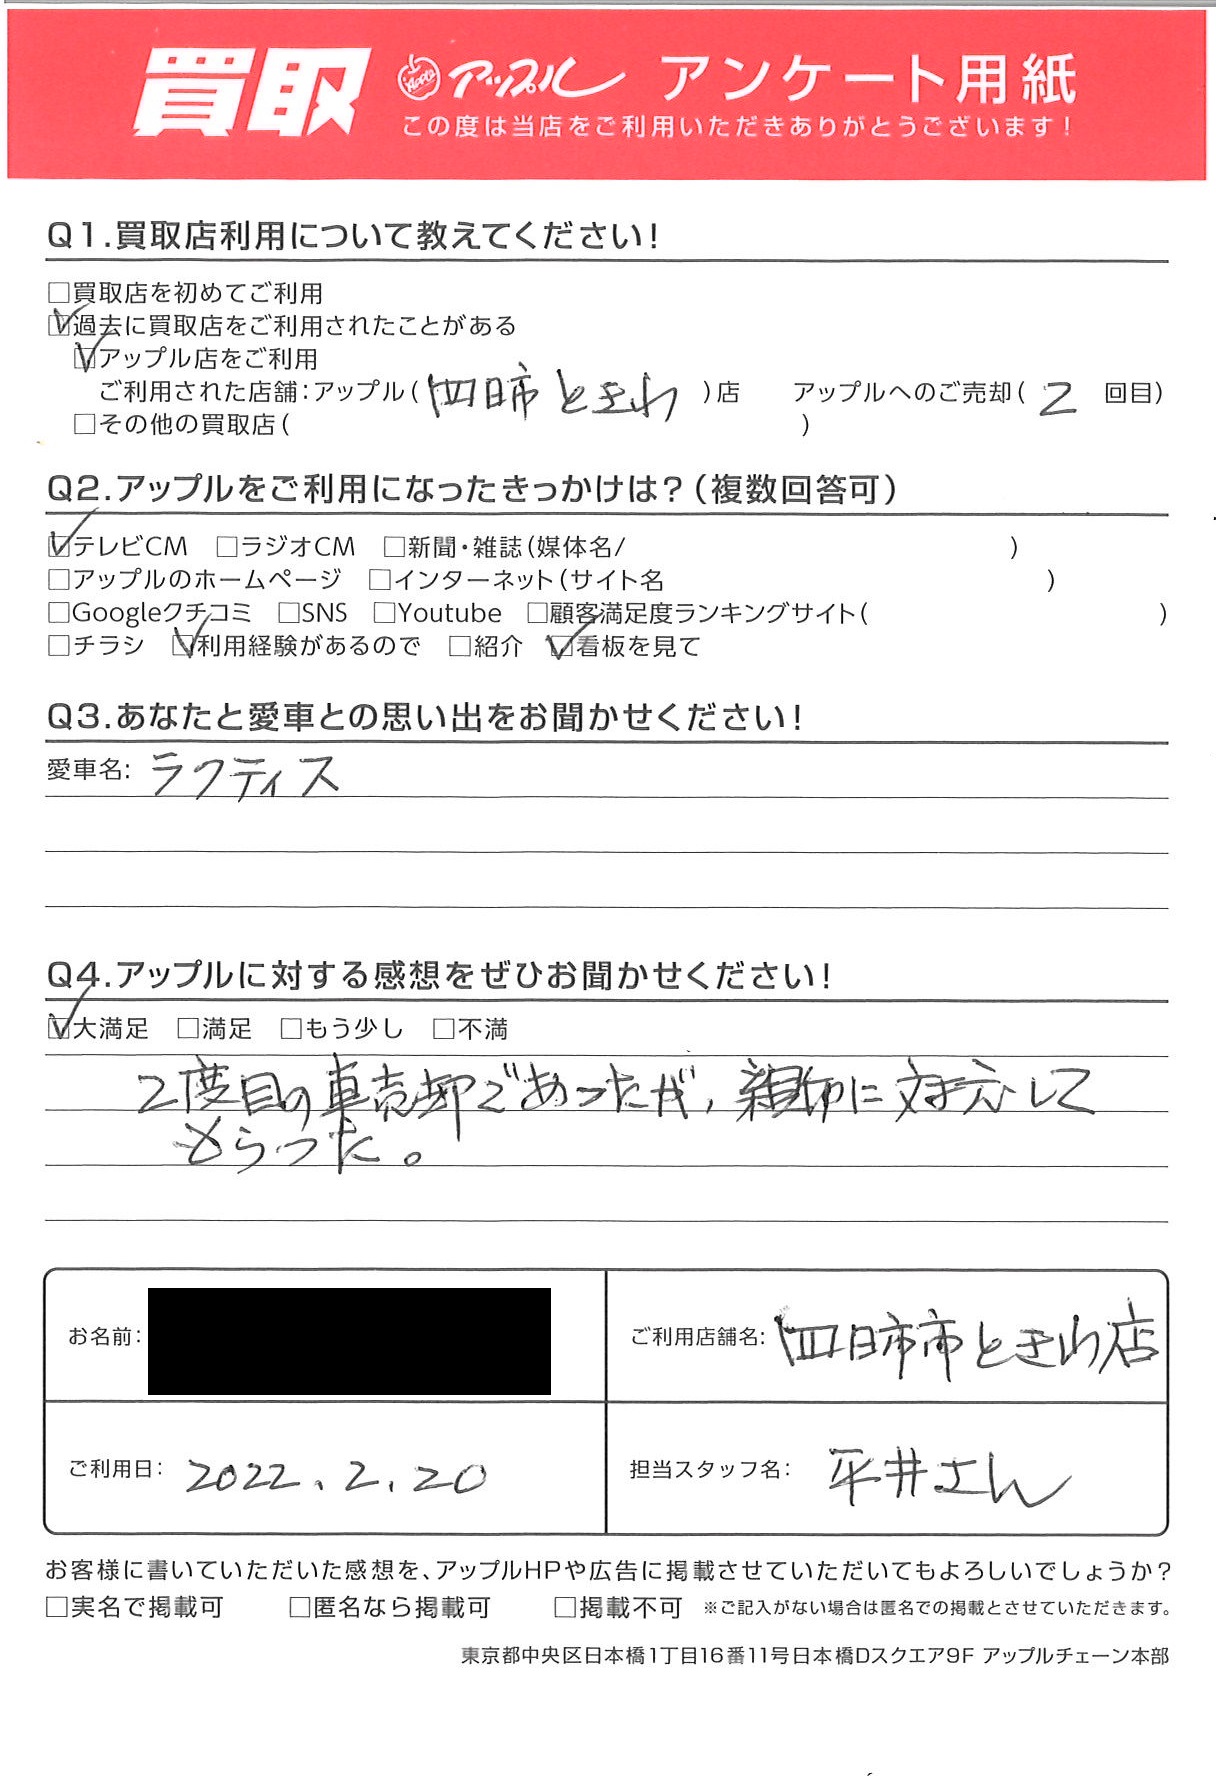 買取 Apple アップル アンケート用紙
この度は当店をご利用いただきありがとうございます!
Q1.買取店利用について教えてください!
□買取店を初めてご利用
☑過去に買取店をご利用されたことがある
☑アップル店をご利用
ご利用された店舗:アップル(四日市ときわ)店 アップルへのご売却(2回目)
□その他の買取店( )
Q2.アップルをご利用になったきっかけは?(複数回答可)
☑テレビCM □ラジオCM □新聞・雑誌(媒体名/ )
□アップルのホームページ □インターネット(サイト名 )
□Googleクチコミ □SNS □Youtube □顧客満足度ランキングサイト( )
□チラシ ☑利用経験があるので □紹介 ☑看板を見て
Q3.あなたと愛車との思い出をお聞かせください!
愛車名: ラクティス
Q4.アップルに対する感想をぜひお聞かせください!
☑大満足 □満足 □もう少し □不満
2度目の車売却であったが、親切に対応して
もらった。
お名前:
ご利用店舗名: 四日市市ときわ店
ご利用日: 2022.2.20
担当スタッフ名: 平井さん
お客様に書いていただいた感想を、アップルHPや広告に掲載させていただいてもよろしいでしょうか?
□実名で掲載可 □匿名なら掲載可 □掲載不可 ※ご記入がない場合は匿名での掲載とさせていただきます。
東京都中央区日本橋1丁目16番11号日本橋Dスクエア9F アップルチェーン本部